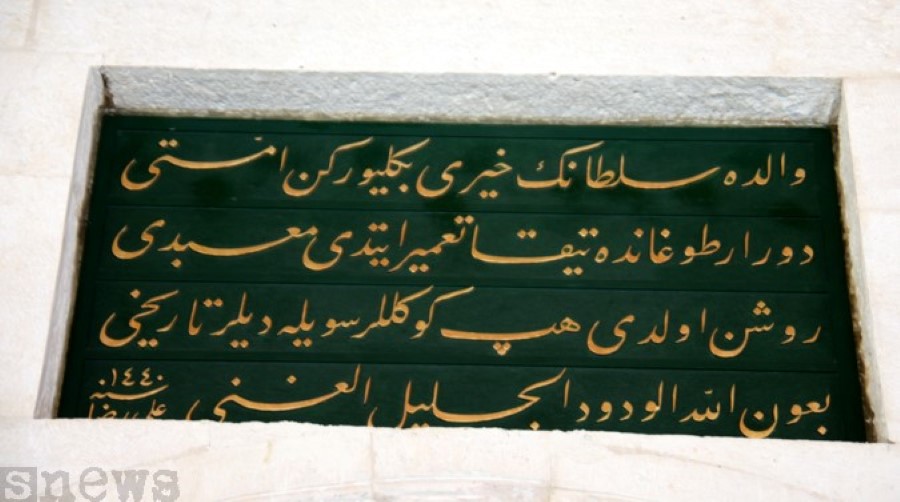 والده سلطانك خیری بكلیوركن امّتی
دور اردطوغانده تیقا تعمیر ایتدی معبدی
روشن اولدی هپ كوكللر سویله دیلر تاریخی
بعون الله الودود الجلیل الغنی
سنه ١٤٤٠
علی رضا
snews